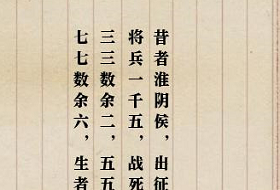 昔者淮阴侯，出征
将兵一千五，战死
三三数余二，五五
七七数余六，生者